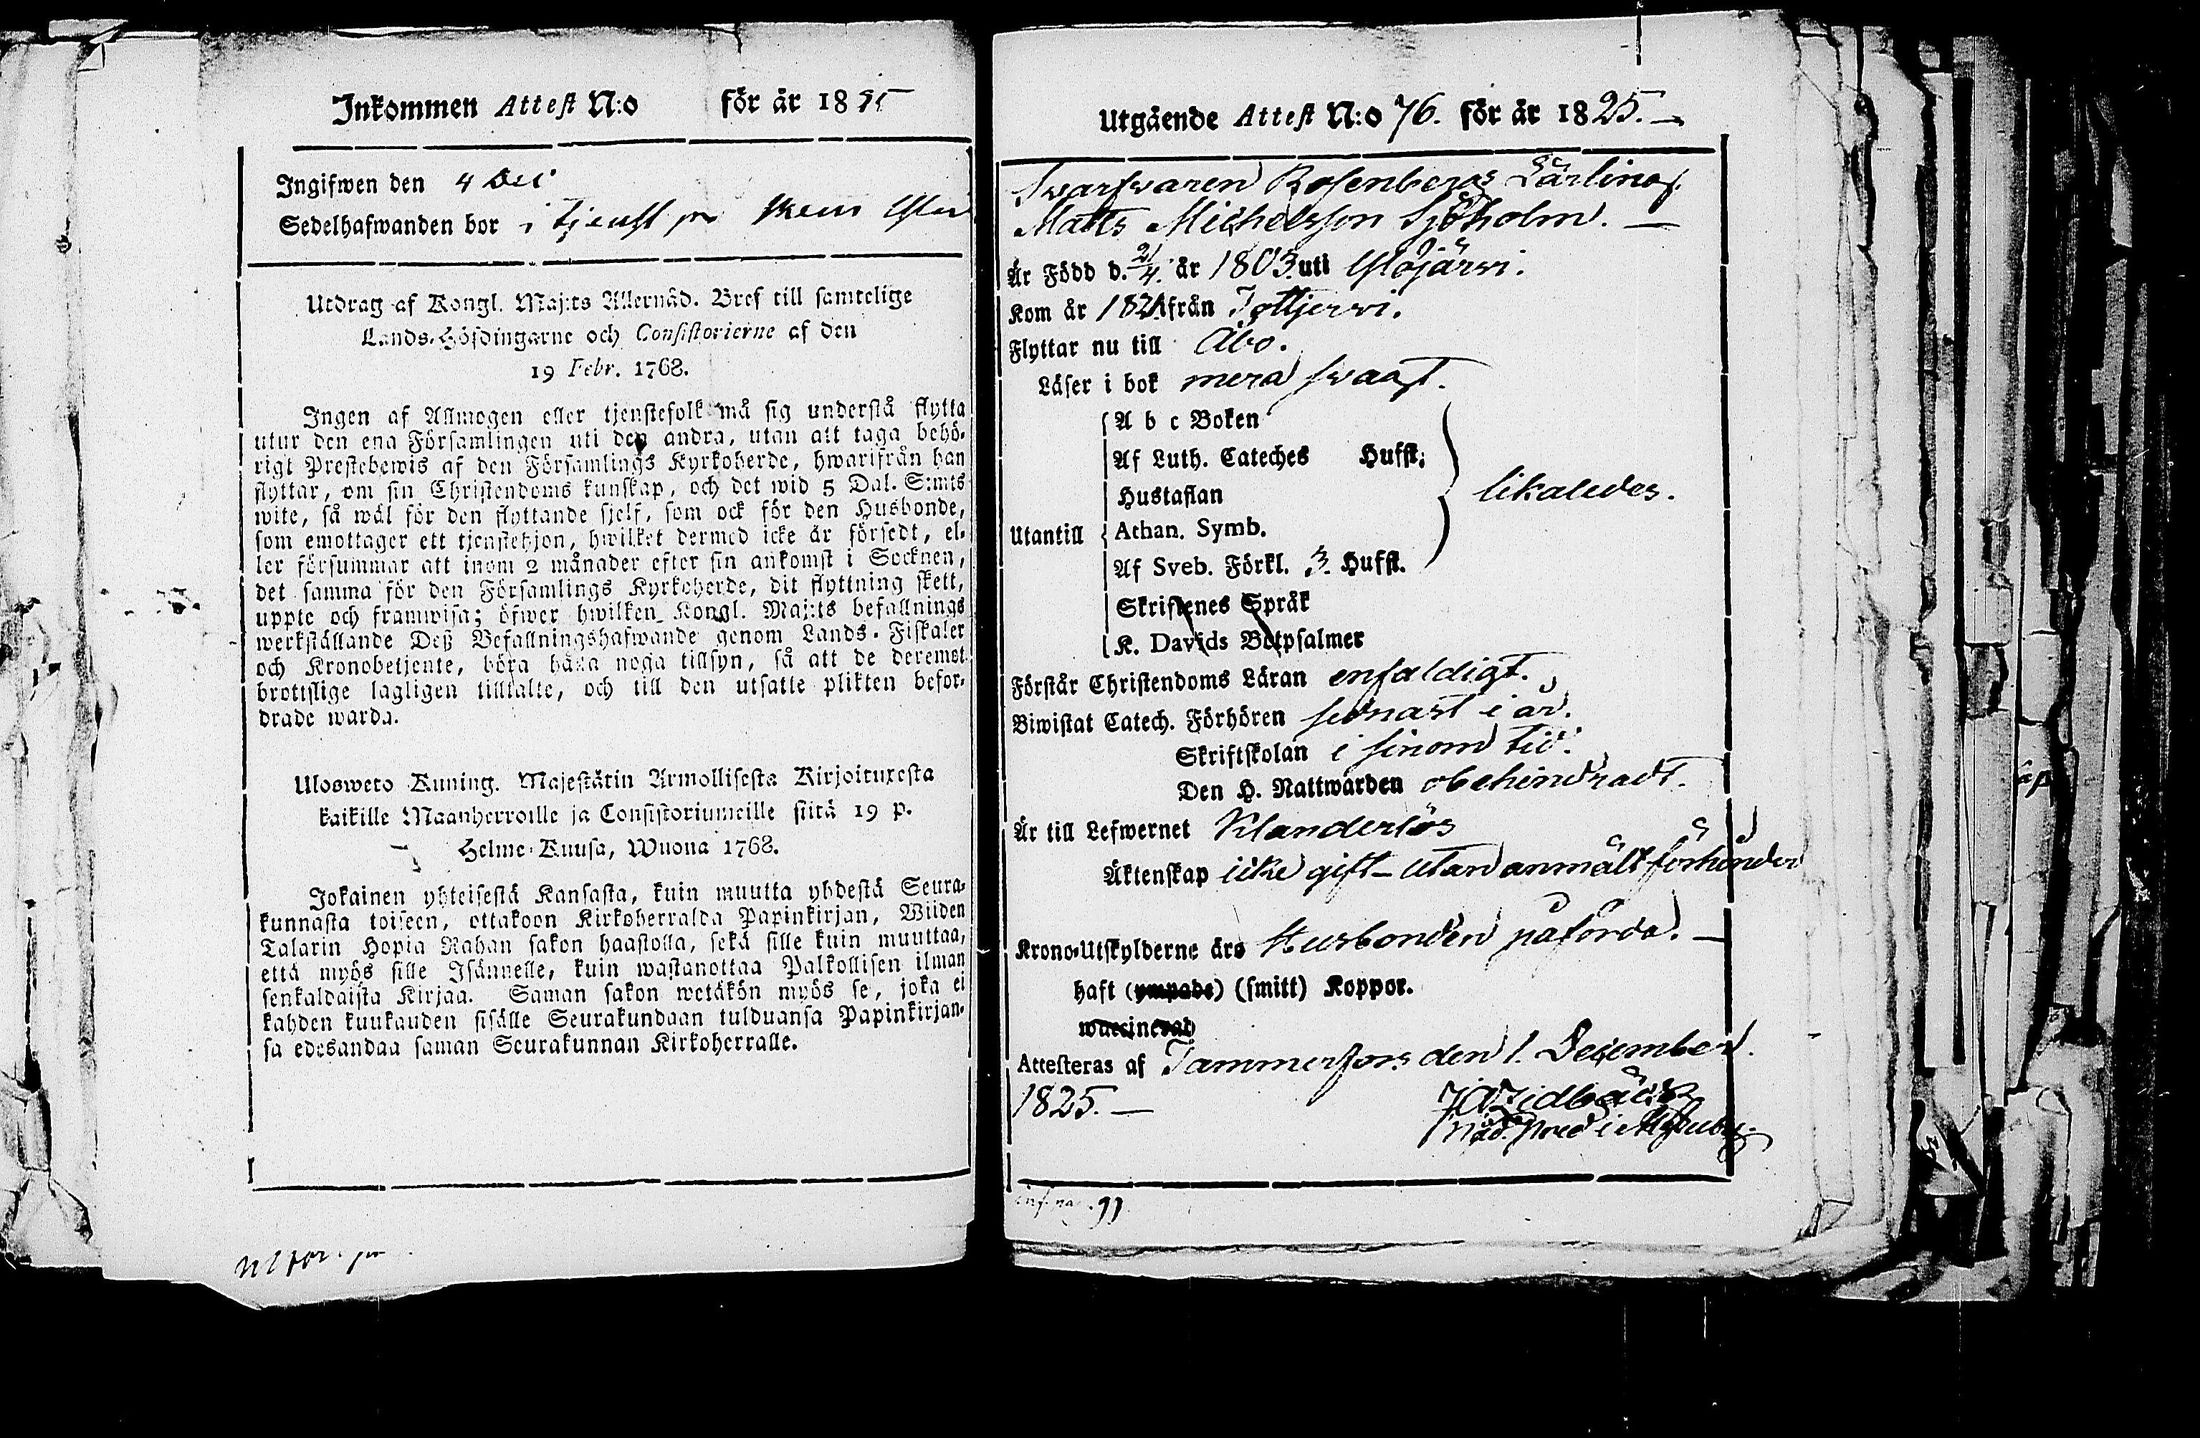 Inkommen Attest N:o för år 1825
Ingifwen den 4 Dec
Sedelhafwanden bor i tjenst på
Utdrag af Kongl. Maj:ts Allernåd. Bref till samtelige
Lands-Höfdingarne och Consistorierne af den
19 Febr. 1768.
Ingen af Allmogen eller tjenstefolk må sig understå flytta
utur den ena Församlingen uti den andra, utan att taga behö-
rigt Prestebewis af den Församlings Kyrkoherde, hwarifrån han
flyttar, om sin Christendoms kunskap, och det wid 5 Dal. S:mts
wite, så wäl för den flyttande sjelf, som ock för den Husbonde,
som emottager ett tjenstehjon, hwilket dermed icke är försedt, el-
ler försummar att inom 2 månader efter sin ankomst i Socknen,
det samma för den Församlings Kyrkoherde, dit flyttning skett,
uppte och framwisa; öfwer hwilken Kongl. Maj:ts befallnings
werkställande Deß Befallningshafwande genom Lands-Fiskaler
och Kronobetjente, böra hålla noga tillsyn, så att de deremot
brottslige lagligen tilltalte, och till den utsatte plikten befor-
drade warda.
Ulosweto Kuning. Majestätin Armollisesta Kirjoituxesta
kaikille Maanherroille ja Consistoriumeille siitä 19 p.
Helme-Kuusa, Wuona 1768.
Jokainen yhteisestä Kansasta, kuin muutta yhdestä Seura-
kunnasta toiseen, ottakoon Kirkoherralda Papinkirjan, Wiiden
Talarin Hopia Rahan sakon haastolla, sekä sille kuin muuttaa,
että myös sille Isännelle, kuin wastanottaa Palkollisen ilman
senkaldaista Kirjaa. Saman sakon wetäkön myös se, joka ei
kahden kuukauden sisälle Seurakundaan tulduansa Papinkirjan-
sa edesandaa saman Seurakunnan Kirkoherralle.
Utgående Attest N:o 76. för år 1825.
Swarfwaren Rosenbergs Lärling,
Matts Michelsson Sjöholm.
Är Född d. 21/4. år 1803. uti Ylöjärwi.
Kom år 1821 från Tottjerwi.
Flyttar nu till Åbo.
Läser i bok mera swagt.
A b c Boken
Af Luth. Cateches Hufst.
Hustaflan likaledes.
Utantill Athan. Symb.
Af Sveb. Förkl. 3. Hufst.
Skriftenes Språk
K. Davids Botpsalmer
Förstår Christendoms Läran enfaldigt.
Biwistat Catech. Förhören sednast i år.
Skriftskolan i sinom tid.
Den H. Nattwarden obehindradt.
Är till Lefwernet Klanderlös
Äktenskap icke gift - utan anmält förhinder
Krono-Utskylderne äro Husbonden påförda.
haft (ympade) (smitt) Koppor.
waccinerad
Attesteras af Tammerfors den 1. December
1825.